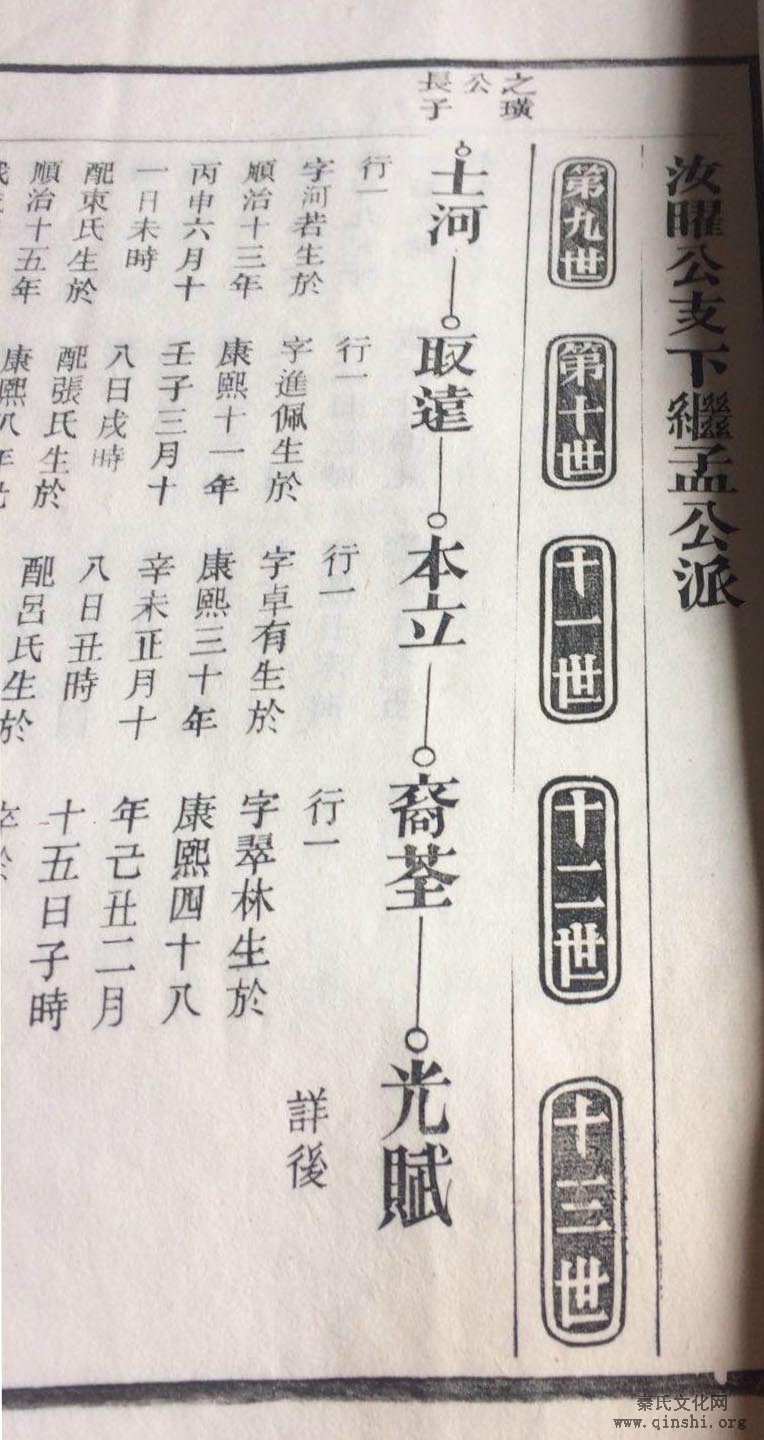 汝曜公支下繼孟公派
第九世
第十世
十一世
十二世
十三世
之璜
公
長子
士河
取遠
本立
裔荃
光賦
行一
字河若生於
順治十三年
丙申六月十
一日未時
配束氏生於
順治十五年
行一
字進佩生於
康熙十一年
壬子三月十
八日戌時
配張氏生於
康熙八年
行一
字卓有生於
康熙三十年
辛未正月十
八日丑時
配呂氏生於
行一
字翠林生於
康熙四十八
年己丑二月
十五日子時
詳後
秦氏文化网
www.qinshi.org